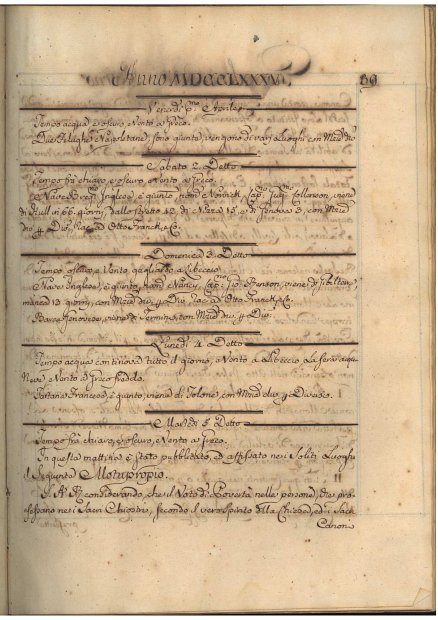 Anno MDCCLXXXV. 39
Venerdì p.mo Aprile
Tempo acqua, e oscuro, Vento a Greco.
Due Filughe Napoletane, sono giunte, vengono di varj Luoghi con
Sabato 2. Detto
Tempo frà chiaro, e oscuro, e Vento a Greco.
Nave Inglese, è giunta, nom. Cap. Collonson, viene
di Hull in 66. giorni, dallo Stretto 42. di Nizza 15. e di Genova 3. con Merci
4 Div. Rac. ad Otto Franck, e C.
Domenica 3. Detto
Tempo oscuro, e Vento gagliardo a Libeccio
Nave Inglese, è giunta, nom. Nancy, Cap. Gio. viene di Gibilterra,
manca 13 giorni, con Merci div. 4 Div. Rac. ad Otto Franck, e C.
Barca Genovese, viene di con Merci div. 4 Div.
Lunedì 4. Detto
Tempo acqua continova tutto il giorno, e Vento a Libeccio La Sera acqua
Neve, e Vento a Greco freddo.
Tartana Francese, è giunta, viene di Tolone, con Merci div. 4 Diversi.
Martedì 5. Detto
Tempo frà chiaro, e oscuro, Vento a Greco.
In questa mattina è stato pubblicato, ed affissato nei Soliti Luoghi
il Seguente Motuproprio.
S. A. R. considerando, che il Voto di Povertà nelle persone, che pro-
fessano nei Sacri Chiostri, secondo il vero Spirito della Chiesa, ed i Sacri
Canoni